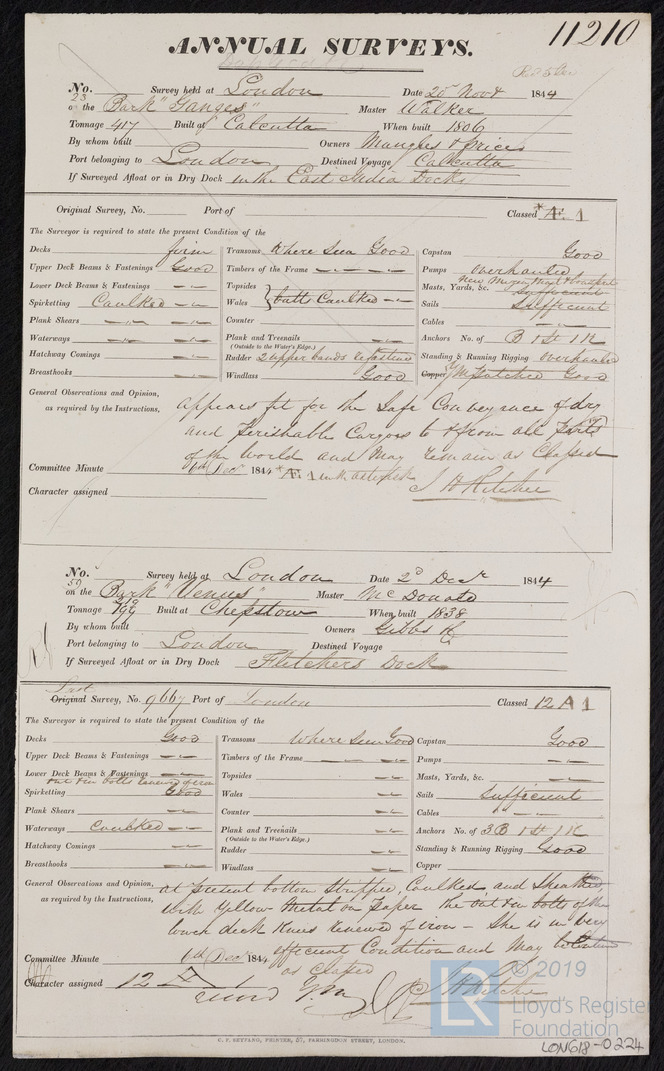 11210
ANNUAL SURVEYS.
No. 23 Survey held at London Date 25 Novr 1844
on the Bark "Ganges" Master Walker
Tonnage 417 Built at Calcutta When built 1806
By whom built Owners Mangles & Price
Port belonging to London Destined Voyage Calcutta
If Surveyed Afloat or in Dry Dock in the East India Docks
Original Survey, No. Port of Classed *Æ 1
The Surveyor is required to state the present Condition of the
Decks firm
Upper Deck Beams & Fastenings Good
Lower Deck Beams & Fastenings
Spirketting Caulked
Plank Shears
Waterways
Hatchway Comings
Breasthooks
Transoms Where Seen Good
Timbers of the Frame
Topsides
Wales } butts Caulked
Counter
Plank and Treenails
(Outside to the Water's Edge.)
Rudder 2 upper bands refastened
Windlass Good
Capstan Good
Pumps overhauled
Masts, Yards, &c. Sufficient
Sails Sufficient
Cables
Anchors No. of B 1 St 1 K
Standing & Running Rigging overhauled
Copper YM patched Good
General Observations and Opinion,
as required by the Instructions,
appears fit for the Safe Conveyance of dry
and Perishable Cargoes to & from all Parts
of the World and May remain as Classed
Committee Minute 6th Decr 1844 *Æ 1 with asterisk
J H Ritchie
Character assigned
No. 59 Survey held at London Date 2d Decr 1844
on the Bark "Venus" Master McDonald
Tonnage Built at Chepstow When built 1838
By whom built Owners Gibbs & Co
Port belonging to London Destined Voyage
If Surveyed Afloat or in Dry Dock Fletchers Dock
Last
Original Survey, No. 9667 Port of London Classed 12 A 1
The Surveyor is required to state the present Condition of the
Decks Good
Upper Deck Beams & Fastenings
Lower Deck Beams & Fastenings
out & in bolts renewed of iron
Spirketting Good
Plank Shears
Waterways Caulked
Hatchway Comings
Breasthooks
Transoms Where Seen Good
Timbers of the Frame
Topsides
Wales
Counter
Plank and Treenails
(Outside to the Water's Edge.)
Rudder
Windlass
Capstan Good
Pumps
Masts, Yards, &c.
Sails Sufficient
Cables
Anchors No. of 3 B 1 St 1 K
Standing & Running Rigging Good
Copper
General Observations and Opinion,
as required by the Instructions,
at present bottom Stripped, Caulked, and Sheathed
with Yellow Metal on Paper the out & in bolts of the
lower deck Knees renewed of iron - She is in very
efficient Condition and May be Continued
as classed
Committee Minute 6th Decr 1844
Character assigned 12 A 1
J H Ritchie
C. F. SEYFANG, PRINTER, 57, FARRINGDON STREET, LONDON.
LR © 2019
Lloyd's Register
Foundation
LON618-0224